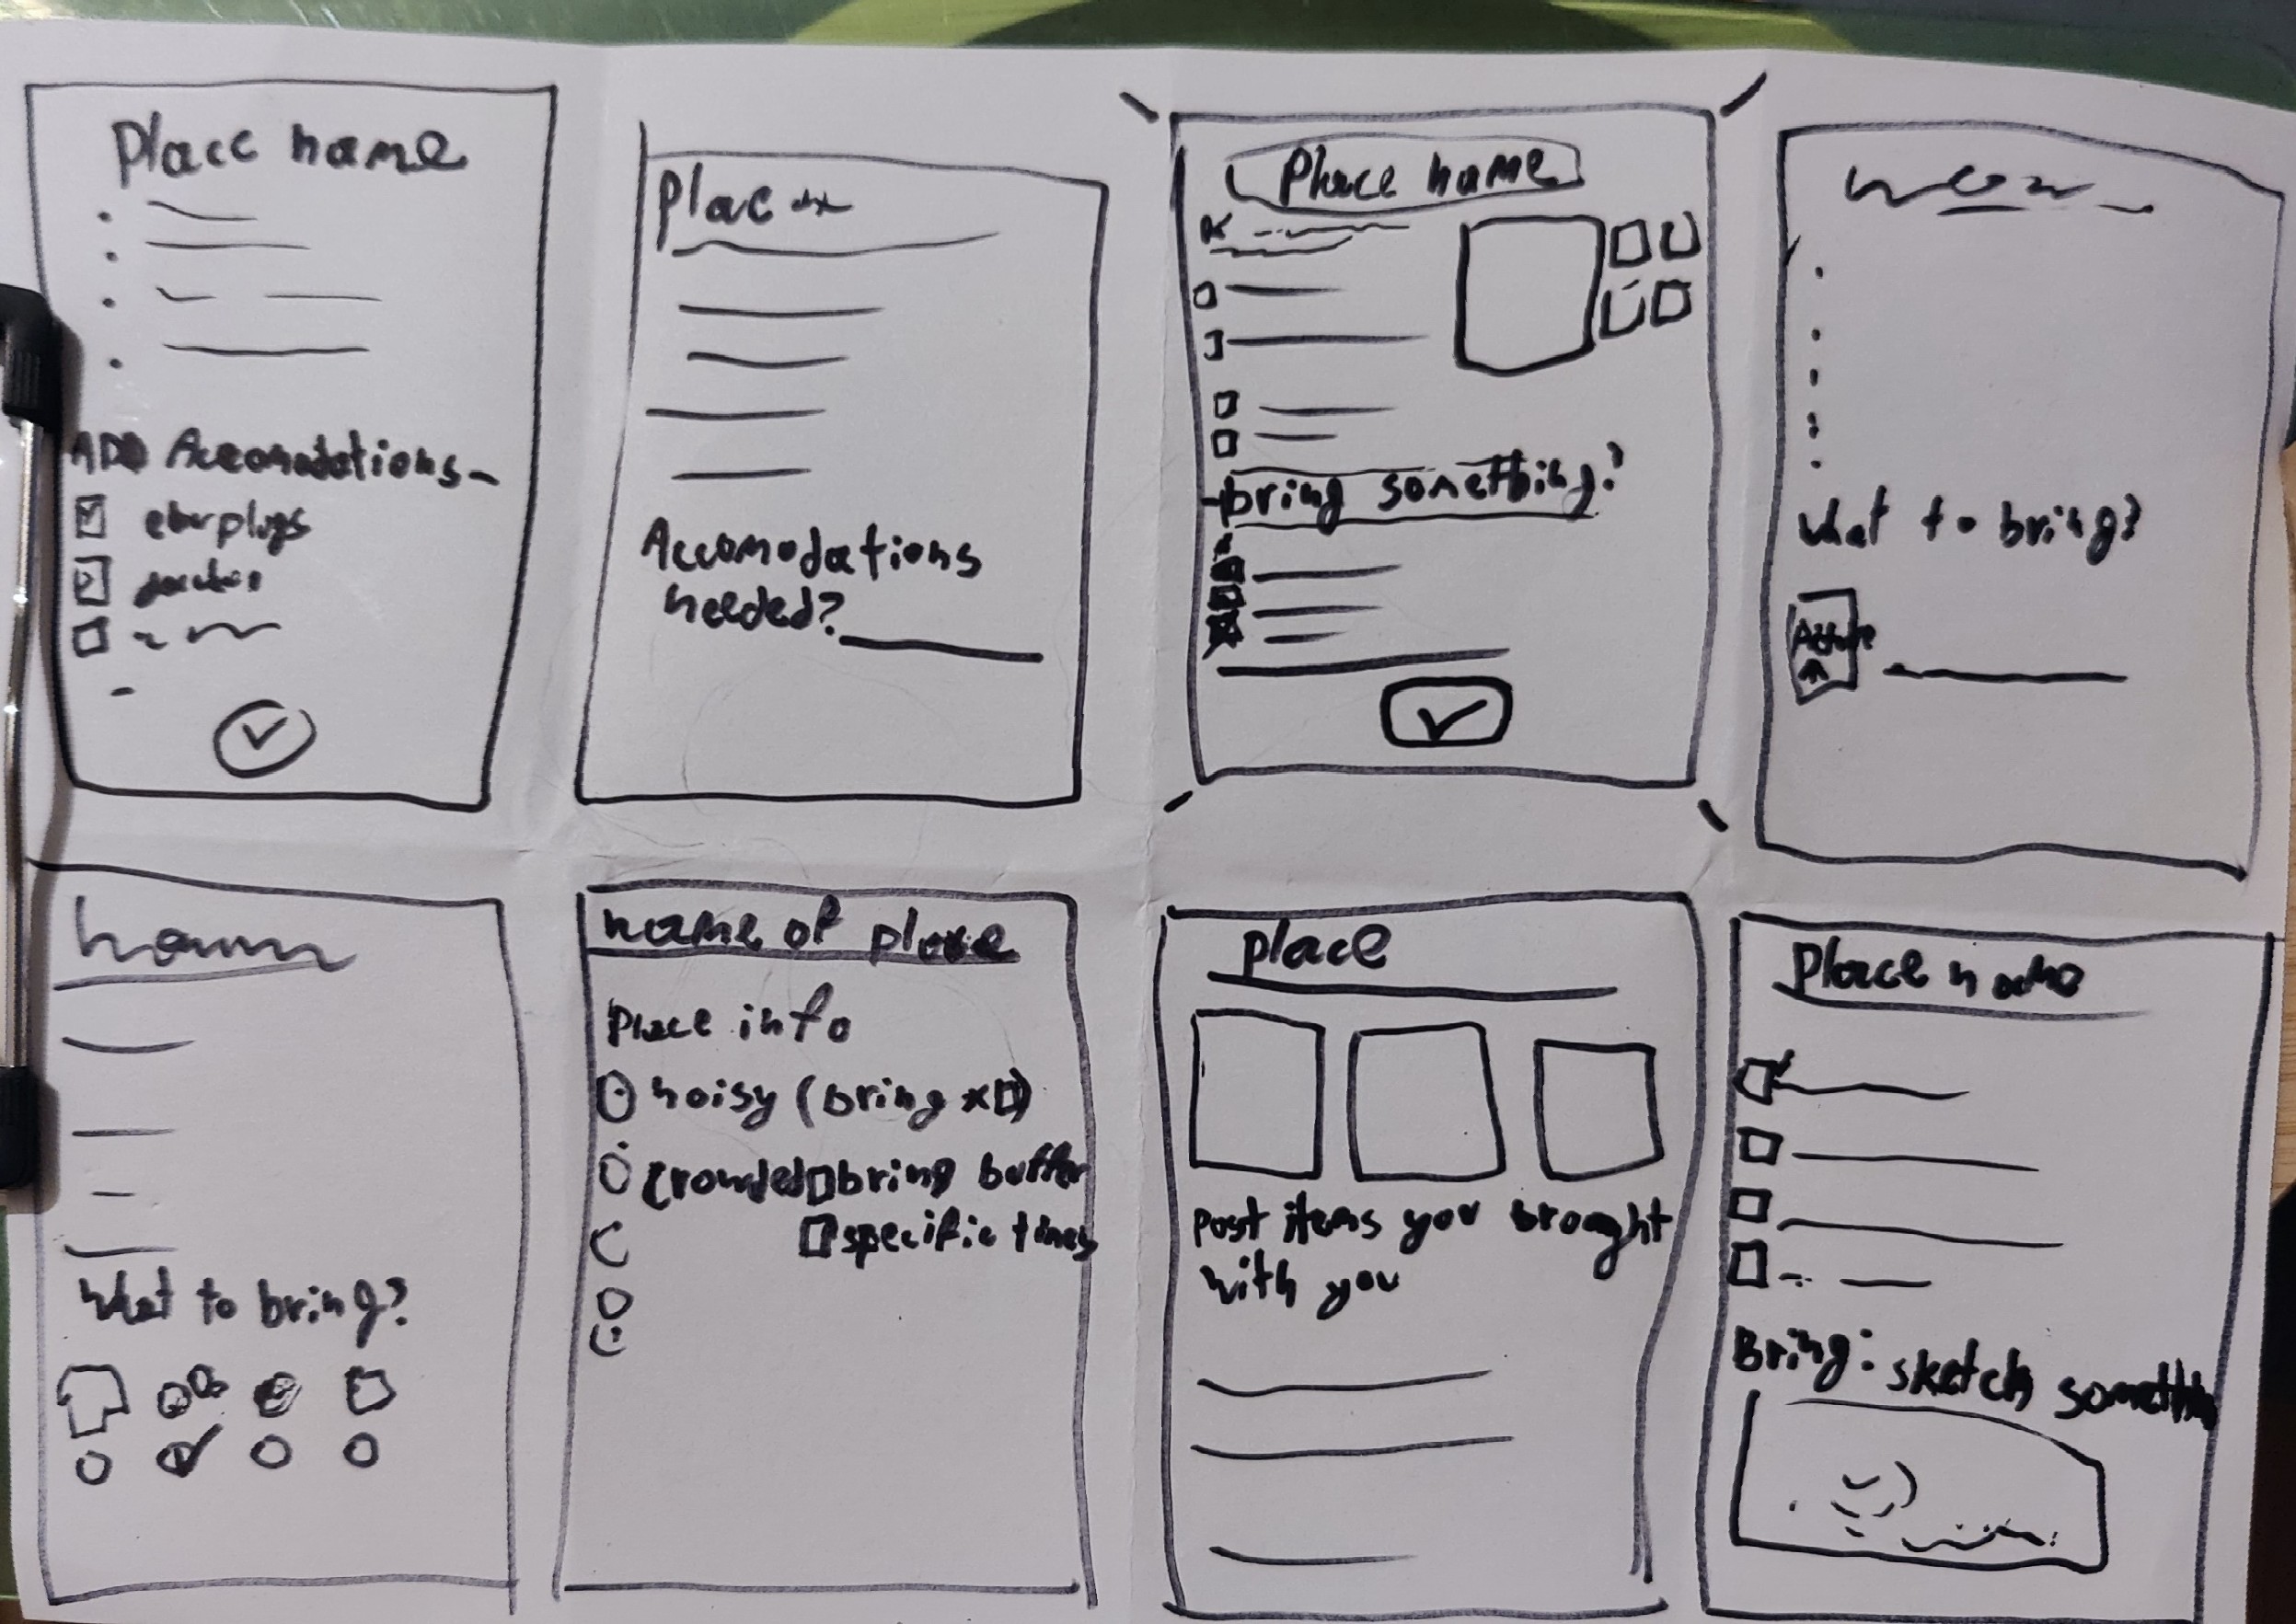 Place name
ADD Accomodations
earplugs
Place
Accomodations
needed?
Place name
bring something?
What to bring?
name
What to bring?
name of place
Place info
noisy (bring
crowded bring buffer
specific times
place
Post items you brought
with you
Place name
Bring: sketch something